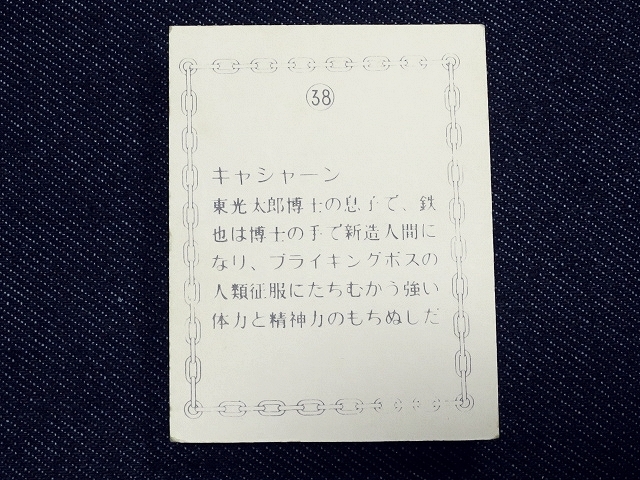 38
キャシャーン
東光太郎博士の息子で、鉄
也は博士の手で新造人間に
なり、ブライキングボスの
人類征服にたちむかう強い
体力と精神力のもちぬしだ